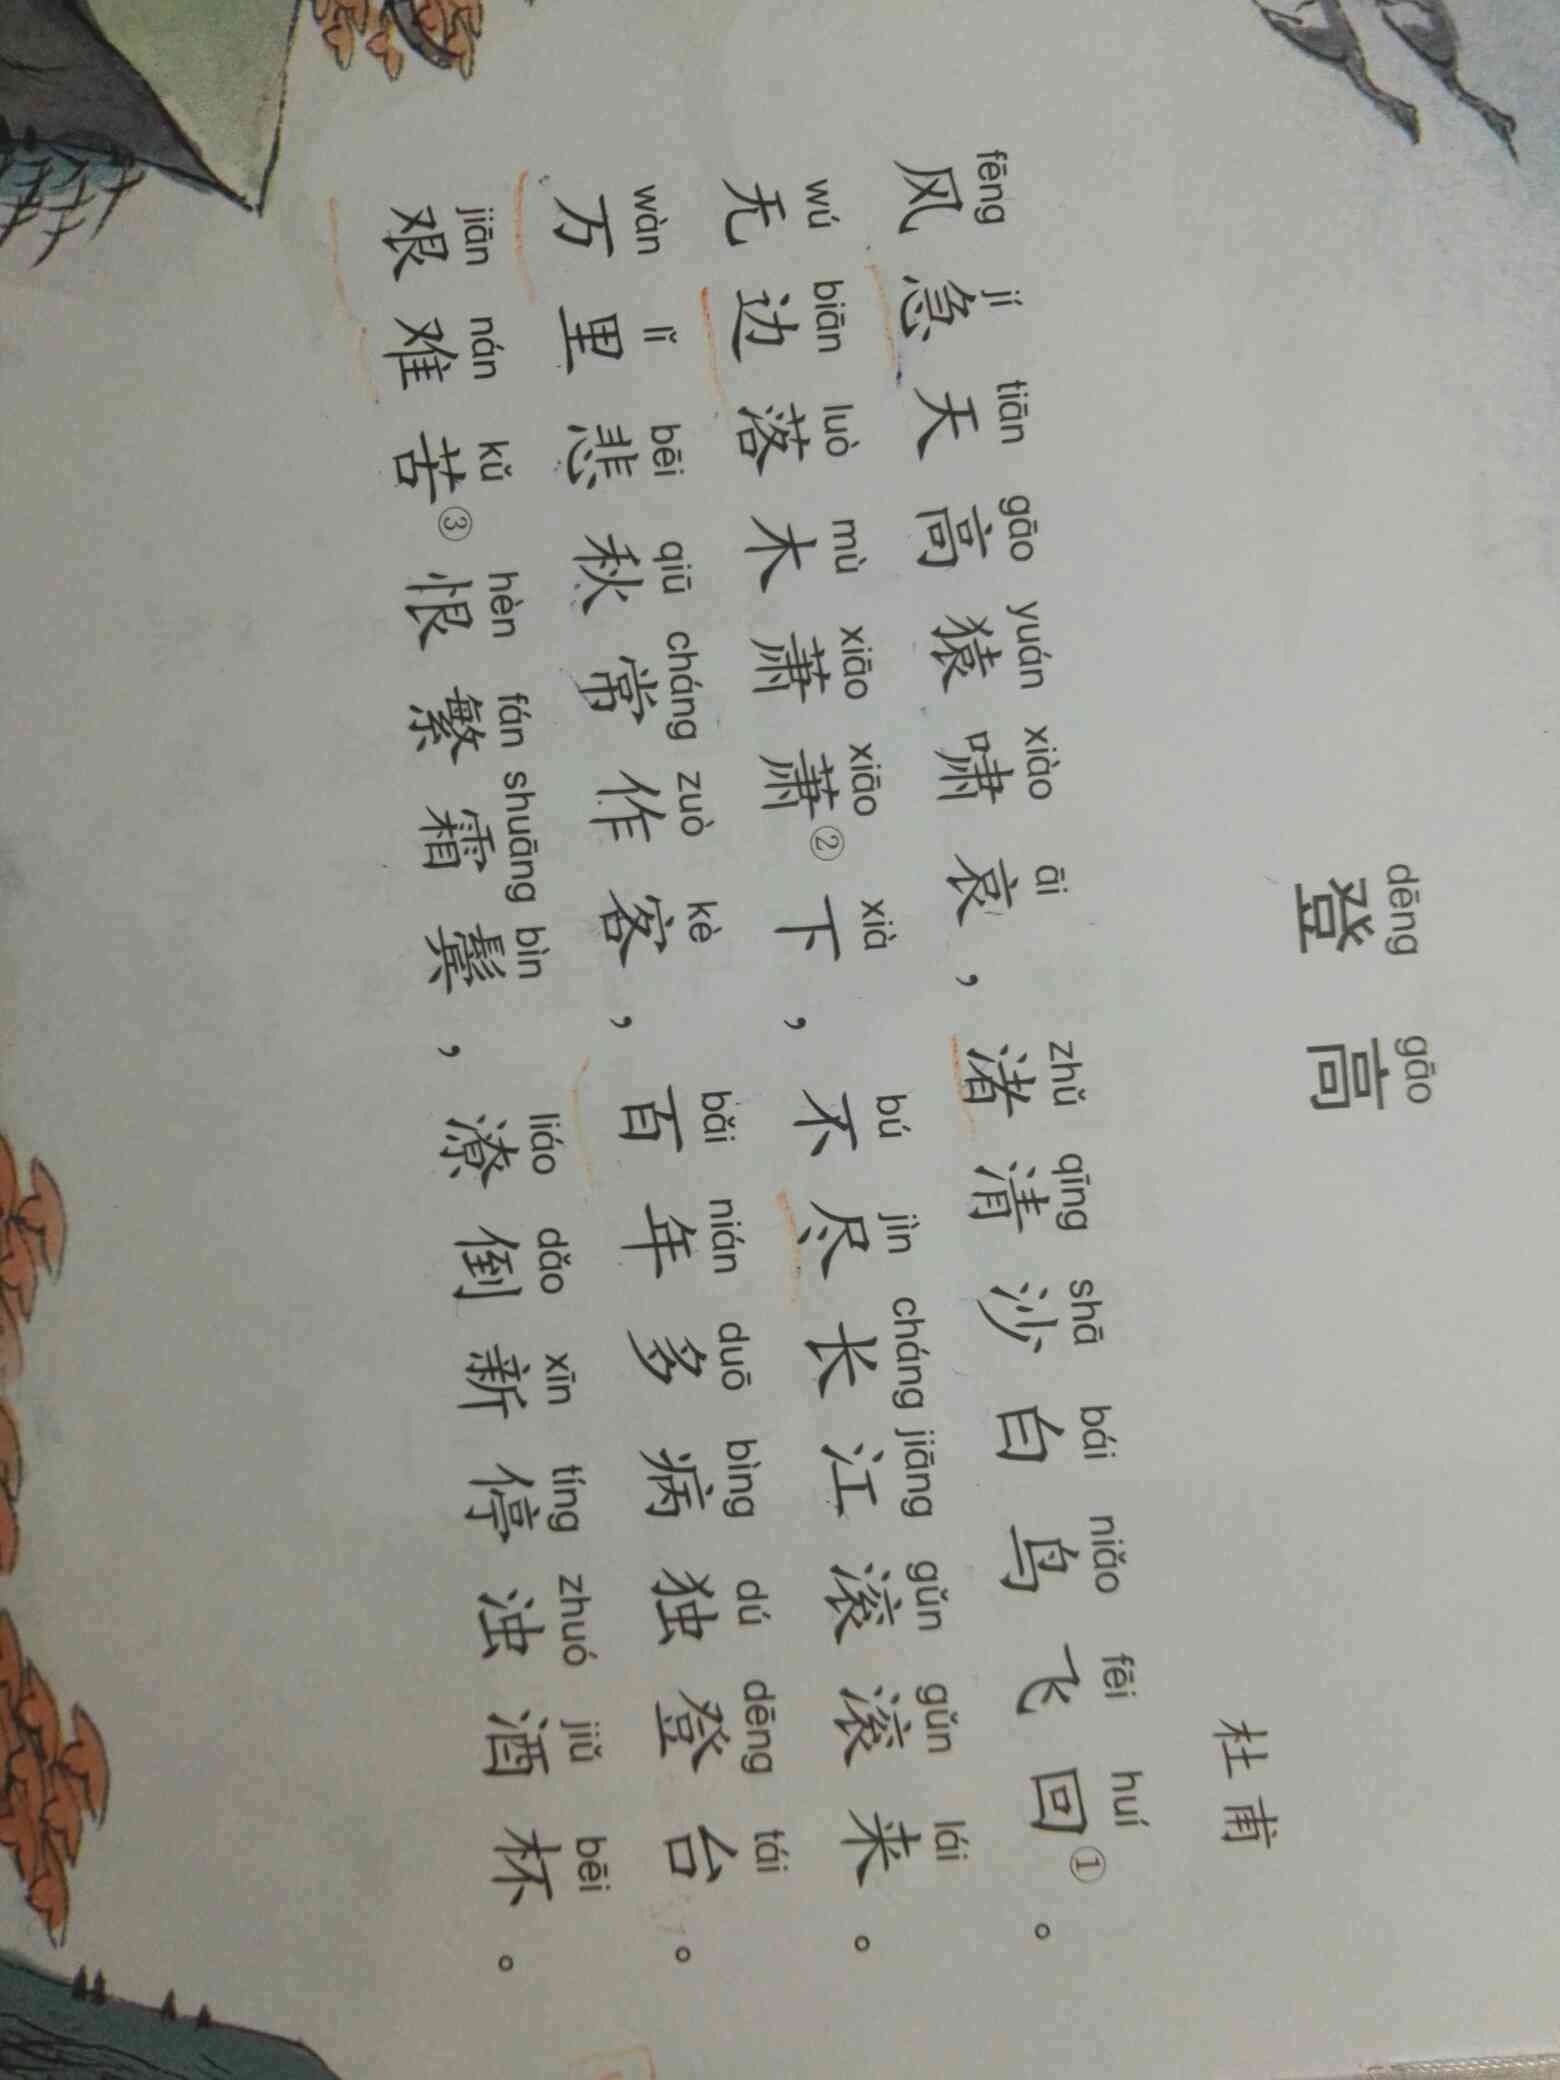 dēng gāo
登 高
杜 甫
fēng jí tiān gāo yuán xiào āi zhǔ qīng shā bái niǎo fēi huí
风急天高猿啸哀，渚清沙白鸟飞回①。
wú biān luò mù xiāo xiāo xià bú jìn cháng jiāng gǔn gǔn lái
无边落木萧萧②下，不尽长江滚滚来。
wàn lǐ bēi qiū cháng zuò kè bǎi nián duō bìng dú dēng tái
万里悲秋常作客，百年多病独登台。
jiān nán kǔ hèn fán shuāng bìn liáo dǎo xīn tíng zhuó jiǔ bēi
艰难苦③恨繁霜鬓，潦倒新停浊酒杯。